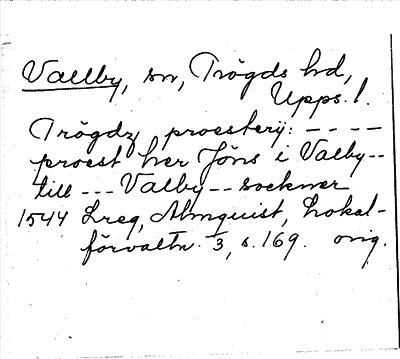 Vallby, sn, Trögds hd,
Upps. l.
Trögdz proesterij: ----
proest her Jöns i Valby--
till --- Valby -- sockner
1544 Lreg, Almquist, Lokal-
förvaltn. 3, s. 169. orig.